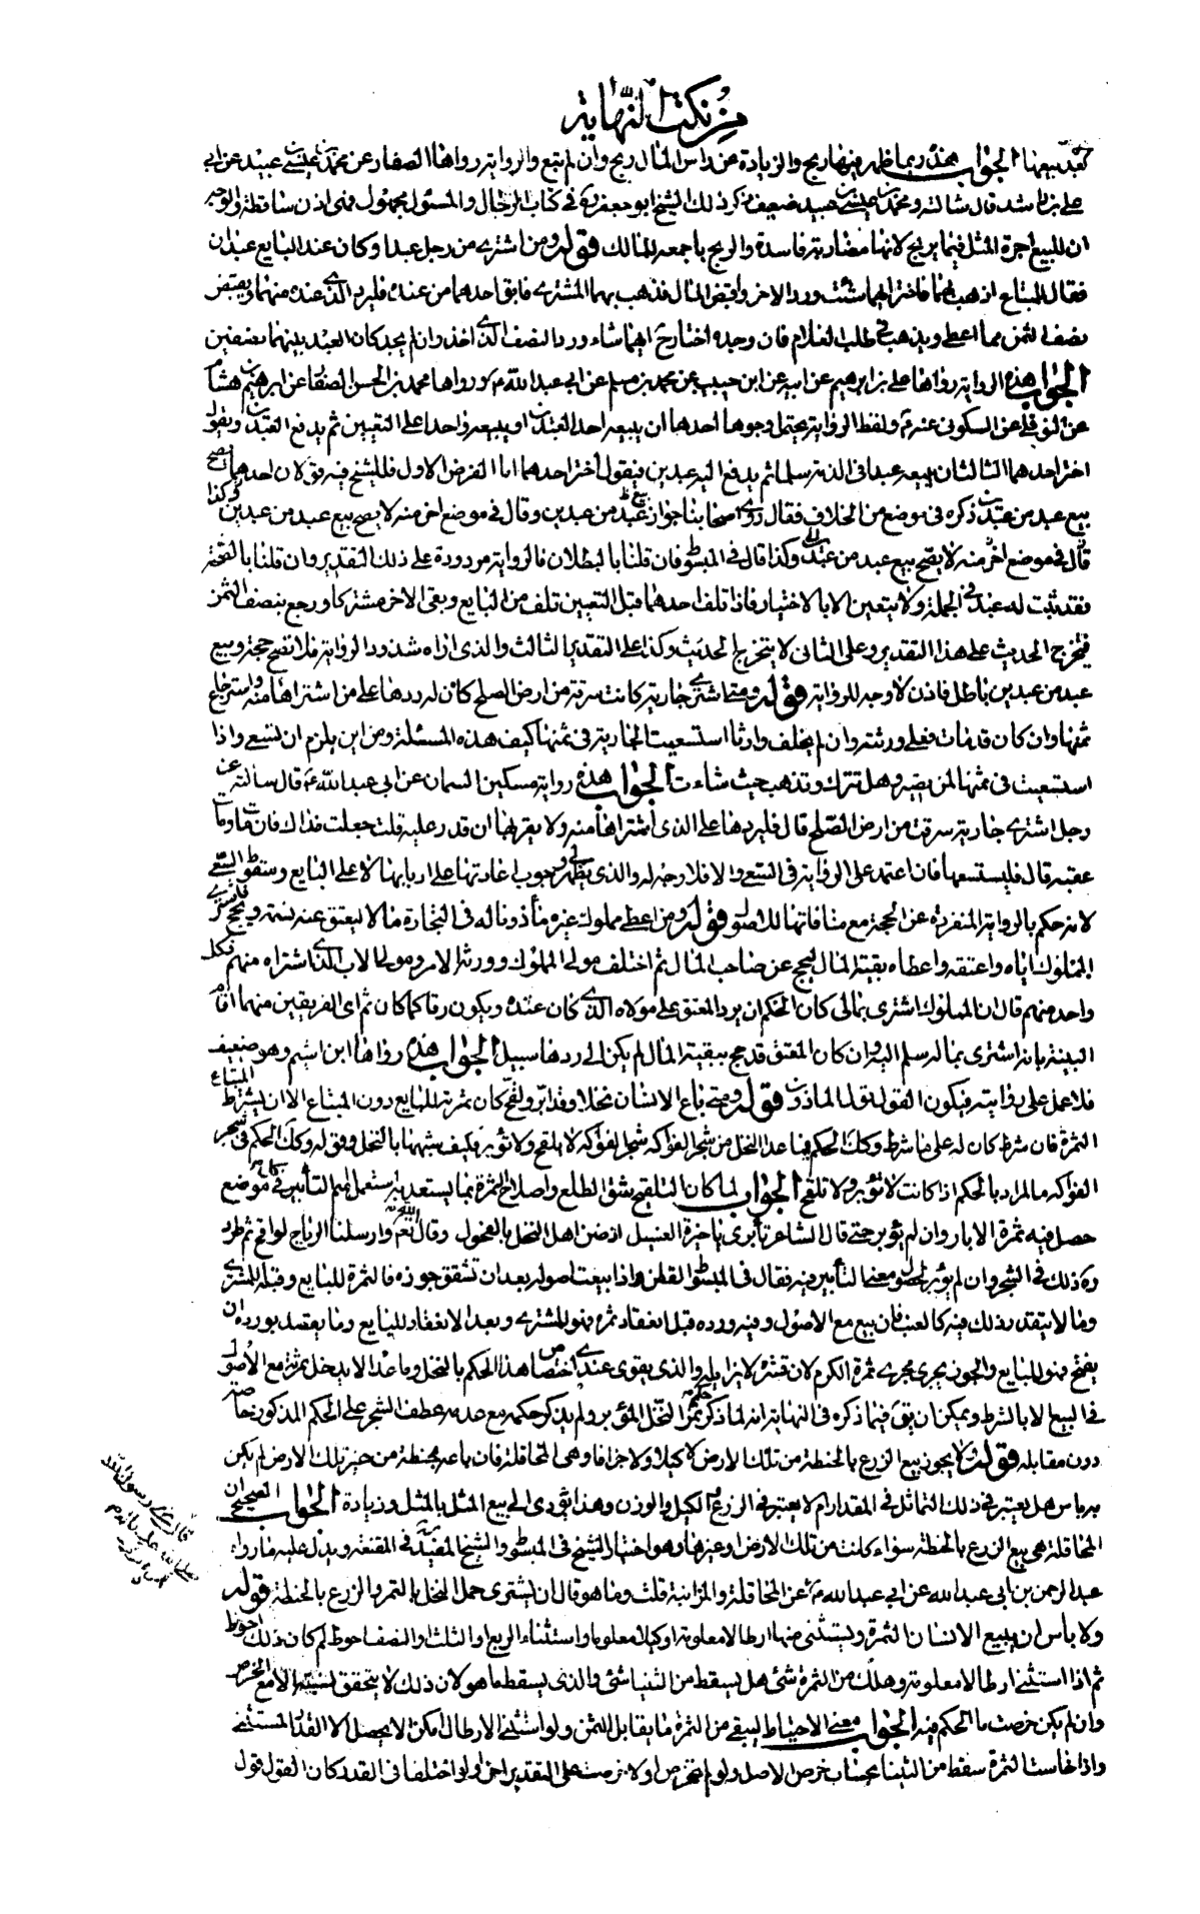 من نكت النهاية
بعد بيعها الجواب هذه ربما ظهر فيها ربح والزيادة عن راس المال ربح وان لم تبع والرواية رواها الصفار عن محمد بن عيسى بن عبيد عن ابي
علي بن راشد قال سالته ومحمد بن عيسى بن عبيد ضعيف ذكر ذلك الشيخ ابو جعفر ره في كتاب الرجال والمسئول مجهول فهى اذن ساقطة والوجه
ان للبيع اجرة المثل فيما يربح لانها مضاربة فاسدة والربح باجمعه للمالك قوله ومن اشترى من رجل عبدا وكان عند البايع عبدان
فقال للمبتاع اذهب بهما فاختر ايهما شئت ورد الاخر وقبض المال فذهب بهما المشتري فابق احدهما من عنده فليرد الذي عنده منهما ويقبض
نصف الثمن مما اعطى ويذهب في طلب الغلام فان وجده اختار ح ايهما شاء ورد النصف الذي اخذ وان لم يجد كان العبد بينهما نصفين
الجواب هذه الرواية رواها علي بن ابرهيم عن ابيه عن ابن حبيب عن محمد بن مسلم عن ابي عبد الله ع ورواها محمد بن الحسن الصفار عن ابرهيم بن هشام
عن النوفلي عن السكوني عنه ع ولفظ الرواية يحتمل وجوها احدها ان يبيعه احد العبدين او يبيعه واحدا على التعيين ثم يدفع العبدين ويقول
اختر احدهما الثالث ان يبيعه عبدا في الذمة سلما ثم يدفع اليه عبدين فيقول اختر احدهما اما الفرض الاول فللشيخ فيه قولان احدهما يصح
بيع عبد من عبدين ذكره في موضع من الخلاف فقال روى اصحابنا جواز بيع عبد من عبدين وقال في موضع اخر منه لا يصح بيع عبد من عبدين وكذا
قال في موضع اخر منه لا يصح بيع عبد من عبدين وكذا قال في المبسوط فان قلنا بالبطلان فالرواية مردودة على ذلك التقدير وان قلنا بالصحة
فقد ثبت له عبد في الجملة ولا يتعين الا بالاختيار فاذا تلف احدهما قبل التعيين تلف من البايع وبقى الاخر مشتركا ورجع بنصف الثمن
فتخرج الحديث على هذا التقدير وعلى الثاني لا يتخرج الحديث وكذا على التقدير الثالث والذي اراه شذوذ الرواية فلا تصح حجة وبيع
عبد من عبدين باطل فاذن لا وجه للرواية قوله ومتى اشترى جارية كانت سرقة من ارض الصلح كان له ردها على من اشتراها منه واسترجاع
ثمنها وان كان قد مات فعلى ورثته وان لم يخلف وارثا استسعيت الجارية في ثمنها كيف هذه المسئلة ومن اين يلزم ان تسعى واذا
استسعيت في ثمنها لمن يصير وهل تترك وتذهب حيث شاءت الجواب هذه رواية مسكين السمان عن ابي عبد الله ع قال سالته عن
رجل اشترى جارية سرقت من ارض الصلح قال فليردها على الذي اشتراها منه ولا يقربها ان قدر عليه قلت جعلت فداك فان مات ومات
عقبه قال فليستسعها فان اعتمد على الرواية في السعي والا فلا وجه له والذي يظهر لي وجوب اعادتها على اربابها لا على البايع وسقوط السعي
لانه حكم بالرواية المنفردة عن الحجة مع منافاتها للاصول قوله ومن اعطى مملوك غيره مأذونا له في التجارة مالا ليعتق عنه نسمة ويحج فاشترى
المملوك اباه واعتقه واعطاه بقية المال ليحج عن صاحب المال ثم اختلف مولى المملوك وورثة الامر ومولى الاب الذي اشتراه منهم فكل
واحد منهم قال ان المملوك اشترى بمالي كان الحكم ان يرد المعتق على مولاه الذي كان عنده ويكون رقا كما كان ثم اى الفريقين منهما اقام
البينة بانه اشترى بماله سلم اليه وان كان المعتق قد حج ببقية المال لم يكن الى ردها سبيل الجواب هذه رواها ابن اشيم وهو ضعيف
فلا عمل على روايته فيكون القول قول الماذون قوله ومتى باع الانسان نخلا وقد ابر ولقح كان ثمرته للبايع دون المبتاع الا ان يشترط المبتاع
الثمرة فان شرط كان له على ما شرط وكك الحكم فيما عدا النخل من شجر الفواكه شجر الفواكه لا يلقح ولا يؤبر فكيف شبهها بالنخل وقوله وكك الحكم في شجر
الفواكه ما المراد بالحكم اذا كانت لا تؤبر ولا تلقح الجواب لما كان التلقيح شق الطلع واصلاح الثمرة بما يستعد به استعمل لهم التأبير في كل موضع
حصل فيه ثمرة الابار وان لم يؤبر حتى قال الشاعر تأبرى ياخيرة الفسيل اذ ضن اهل النخل بالفحول وقال الله تعم وارسلنا الرياح لواقح ثم طرد
ره ذلك في الشجر وان لم يؤبر لحصول معنى التأبير فيه فقال في المبسوط القطن واذا بيعت اصوله بعد ان تشقق جوزه فالثمرة للبايع وقبله للمشتري
وما لا يتقدر ذلك فيه كالعنب فان بيع مع الاصول وفيه ورده قبل انعقاد ثمره فهو للمشتري وبعد الانعقاد للبايع وما يقصد بورده ان
يفتح فهو للبايع والجوز يجري مجرى ثمرة الكرم لان قشره لا يزايله والذي يقوى عندي اختصاص هذا الحكم بالنخل وما عداه لا يدخل ثمرته مع الاصول
في البيع الا بالشرط ويمكن ان يق فيما ذكره في النهاية انه لما ذكر حكم ثمر النخل المؤبر ولم يذكر حكمه مع عدمه عطف الشجر على الحكم المذكور خاصة
دون مقابله قوله ولا يجوز بيع الزرع بالحنطة من تلك الارض لا كيلا ولا جزافا وهى المحاقلة فان باعه بحنطة من غير تلك الارض لم يكن
به باس هل يعتبر في ذلك التماثل في المقدار ام لا يعتبر في الزرع الكيل والوزن وهذا يؤدي الى بيع المثل بالمثل وزيادة الجواب الصحيح ان
المحاقلة هى بيع الزرع بالحنطة سواء كانت من تلك الارض او غيرها وهو اختيار الشيخ في المبسوط والشيخ المفيد في المقنعة ويدل عليه ما رواه
عبد الرحمن بن ابي عبد الله عن ابي عبد الله ع عن المحاقلة والمزابنة قلت وما هو قال ان يشترى حمل النخل بالتمر والزرع بالحنطة قوله
ولا بأس ان يبيع الانسان الثمرة ويستثنى منها ارطالا معلومة او كيلا معلوما واستثناء الربع او الثلث او النصف احوط لم كان ذلك احوط
ثم اذا استثنى ارطالا معلومة وهلك من الثمرة شئ هل يسقط من الثنيا شئ والذي يسقط ما هو لان ذلك لا يتحقق نسبته الا مع الخرص
وان لم يكن خرصت ما الحكم فيه الجواب معنى الاحتياط ليبقى من الثمرة ما يقابل الثمن ولو استثنى الارطال امكن الا يحصل الا القدر المستثنى
واذا خاست الثمرة سقط من الثنيا بحساب خرص الاصل ولو لم تخرص اولا خرصت على التقدير اخيرا ولو اختلفا في القدر كان القول قول